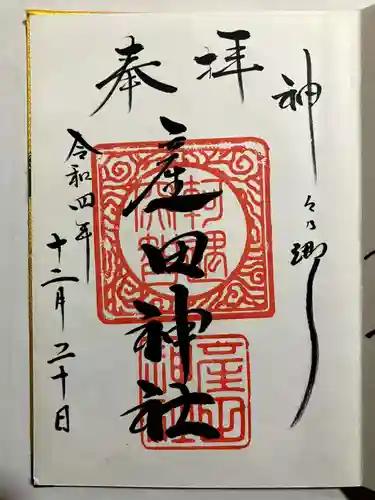 神々乃郷
奉拝
産田神社
令和四年
十二月二十日
産田神社